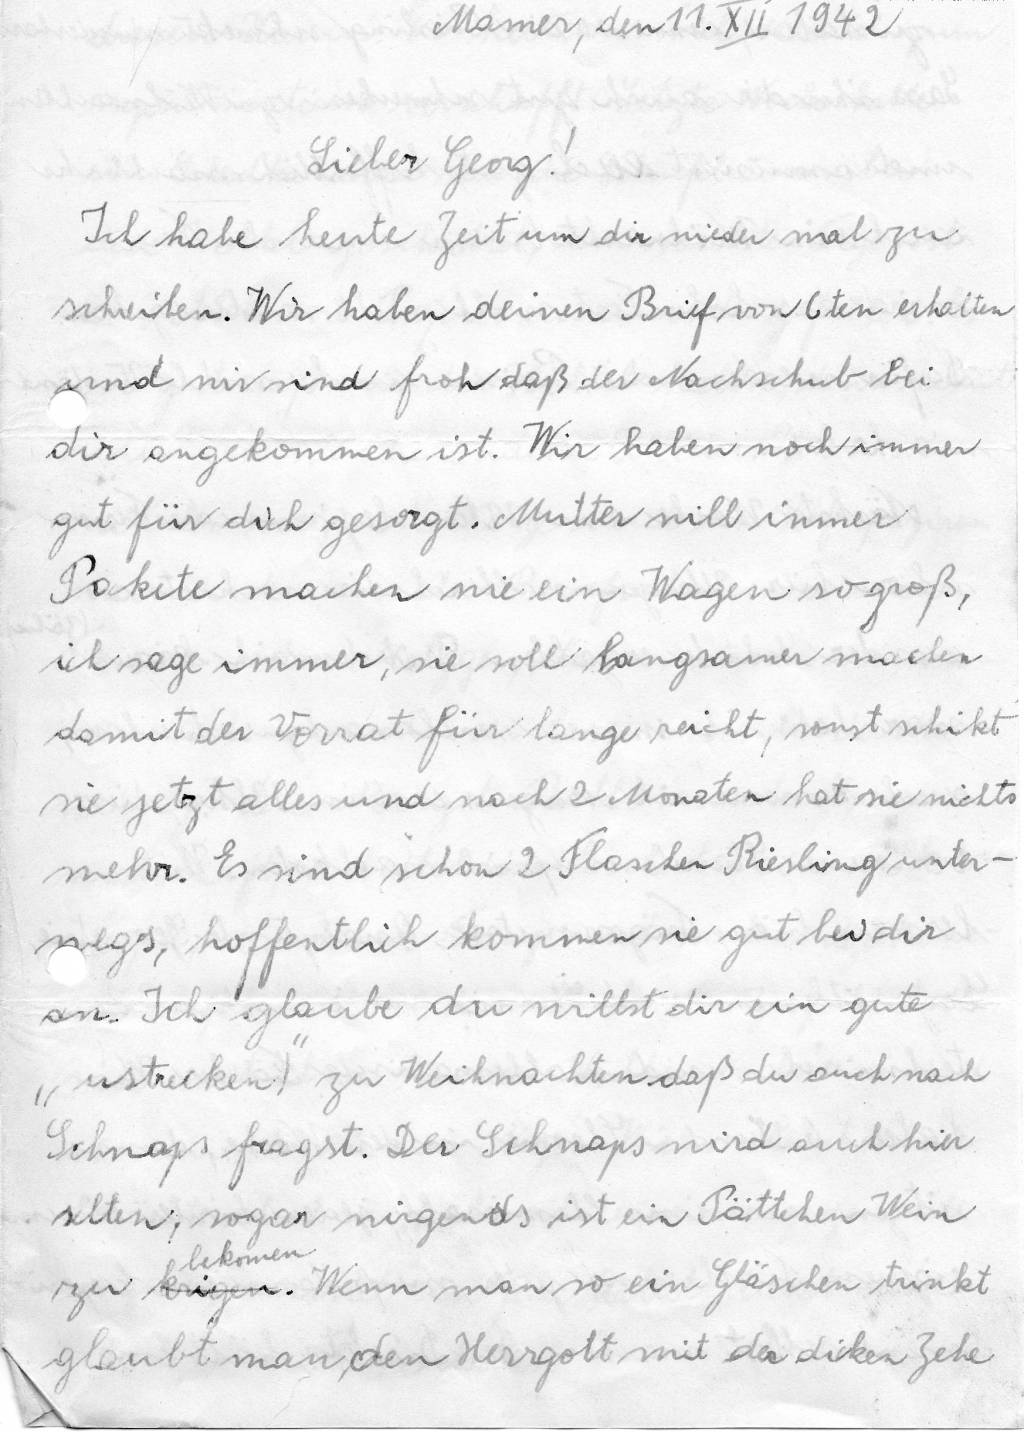 Mamer, den 11. XII 1942
Lieber Georg!
Ich habe heute Zeit um dir wieder mal zu
schreiben. Wir haben deinen Brief von 6ten erhalten
und wir sind froh daß der Nachschub bei
dir angekommen ist. Wir haben noch immer
gut für dich gesorgt. Mutter will immer
Pakete machen wie ein Wagen so groß,
ich sage immer, sie soll langsamer machen
damit der Vorrat für lange reicht, sonst schikt
sie jetzt alles und nach 2 Monaten hat sie nichts
mehr. Es sind schon 2 Flaschen Riesling unter-
wegs, hoffentlich kommen sie gut bei dir
an. Ich glaube du willst dir ein gute
„ustrecken!" zu Weihnachten daß du auch nach
Schnaps fragst. Der Schnaps wird auch hier
selten, sogar nirgends ist ein Pättchen Wein
bekomen
zu krigen. Wenn man so ein Gläschen trinkt
glaubt man, den Herrgott mit der dicken Zehe